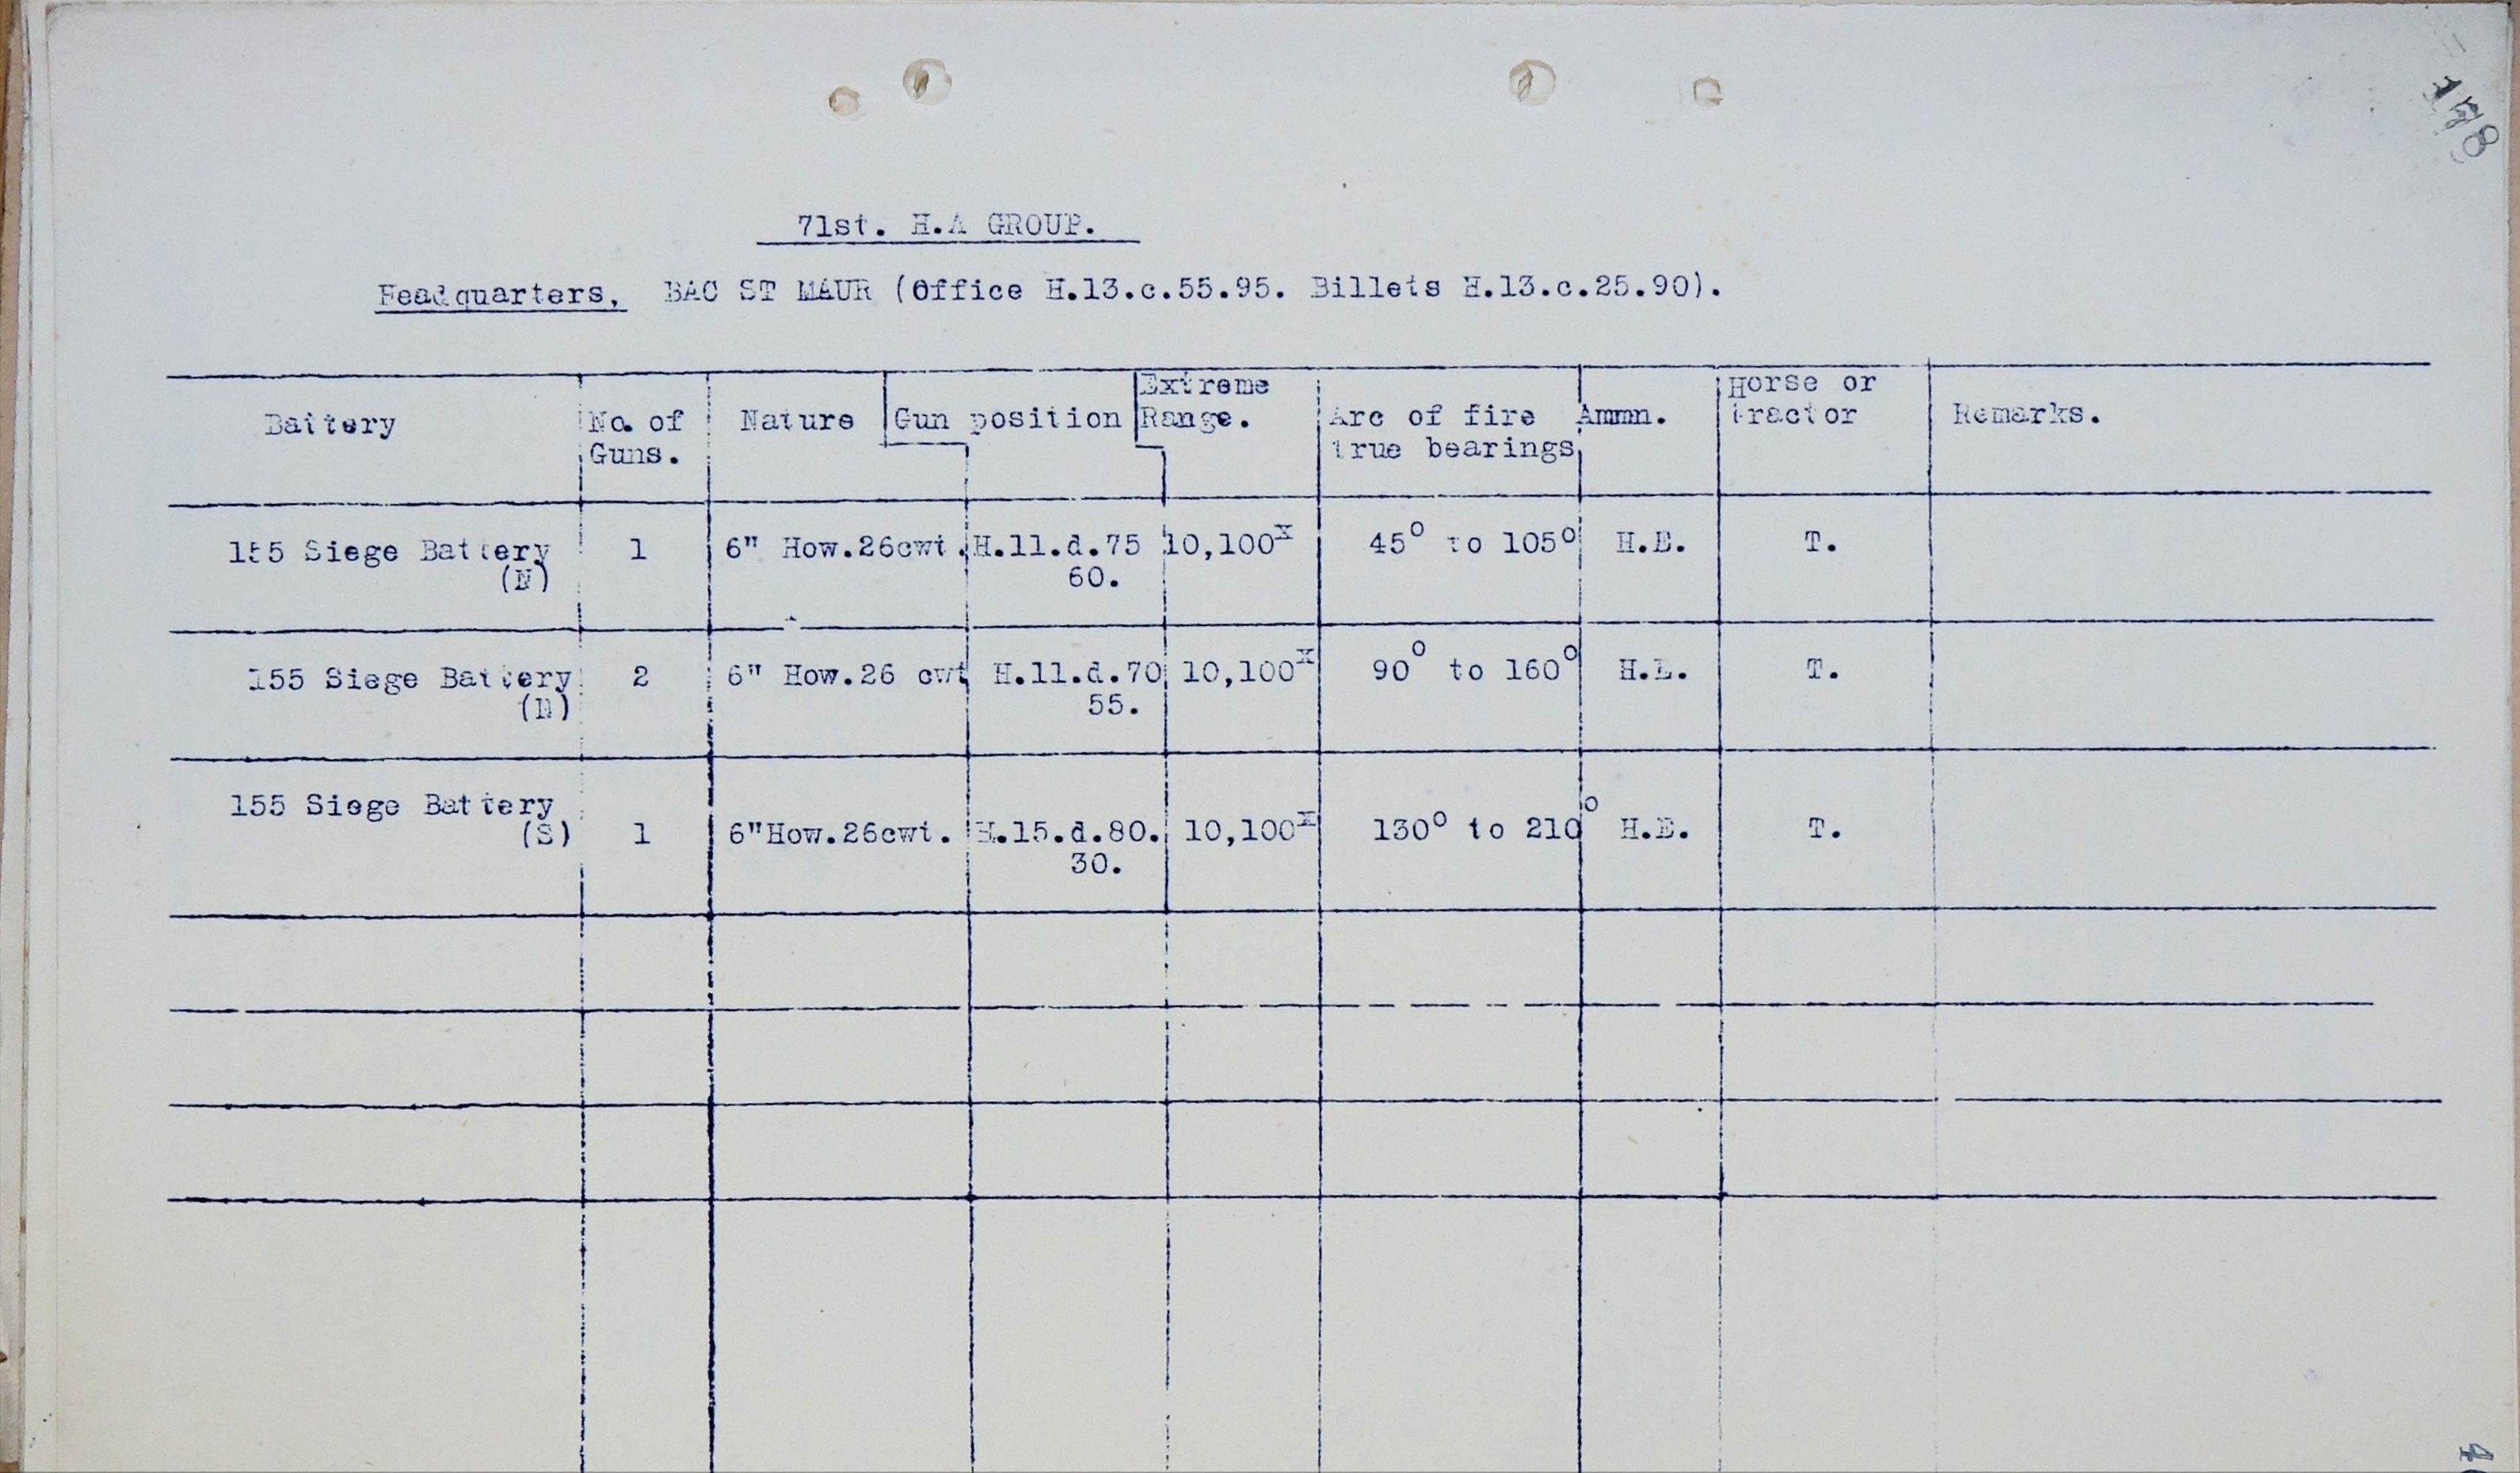 178
71st. H.A GROUP.
Headquarters, BAC ST MAUR (Office H.13.c.55.95. Billets H.13.c.25.90).
Battery No. of Guns. Nature Gun position Extreme Range. Arc of fire true bearings Ammn. Horse or tractor Remarks.
155 Siege Battery 1 6" How.26cwt. H.11.d.75 10,100x 45° to 105° H.E. T.
(N) 60.
155 Siege Battery 2 6" How.26 cwt H.11.d.70 10,100x 90° to 160° H.E. T.
55.
155 Siege Battery
(S) 1 6"How.26cwt. H.15.d.80. 10,100x 130° to 210° H.E. T.
30.